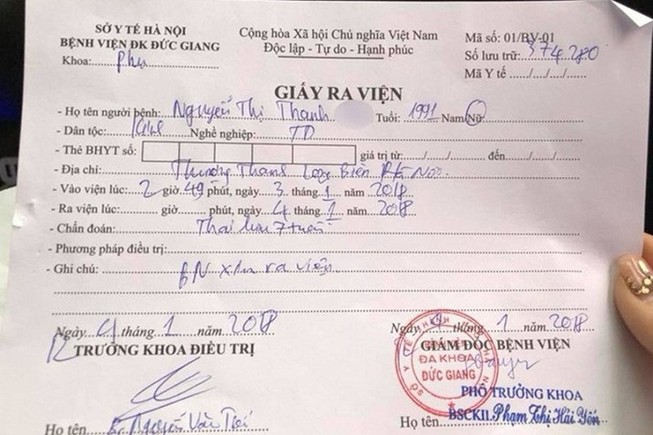 SỞ Y TẾ HÀ NỘI
BỆNH VIỆN ĐK ĐỨC GIANG
Khoa: Phụ
Cộng hòa Xã hội Chủ nghĩa Việt Nam
Độc lập - Tự do - Hạnh phúc
Mã số: 01/BV-01
Số lưu trữ: 374280
Mã Y tế ..../..../..../....
GIẤY RA VIỆN
- Họ tên người bệnh: Nguyễn Thị Thanh Tuổi: 1991 Nam/Nữ
- Dân tộc: Kinh Nghề nghiệp: TD
- Thẻ BHYT số: giá trị từ: ..../..../.... đến ..../..../....
- Địa chỉ: Thượng Thanh Long Biên Hà Nội
- Vào viện lúc: 2 giờ 49 phút, ngày 3 tháng 1 năm 2018
- Ra viện lúc: giờ phút, ngày 4 tháng 1 năm 2018
- Chẩn đoán: Thai lưu 7 tuần
- Phương pháp điều trị:
- Ghi chú: BN xin ra viện
Ngày 4 tháng 1 năm 2018
TRƯỞNG KHOA ĐIỀU TRỊ
Họ tên Bs Nguyễn Văn
Ngày 4 tháng 1 năm 2018
GIÁM ĐỐC BỆNH VIỆN
ĐA KHOA
ĐỨC GIANG
PHÓ TRƯỞNG KHOA
Họ tên BSCKII. Phạm Thị Hải Yến